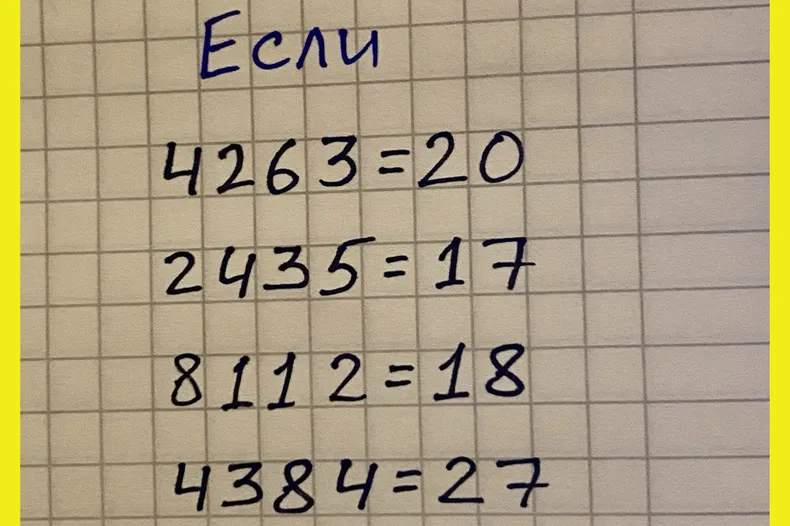 Если
4263=20
2435=17
8112=18
4384=27